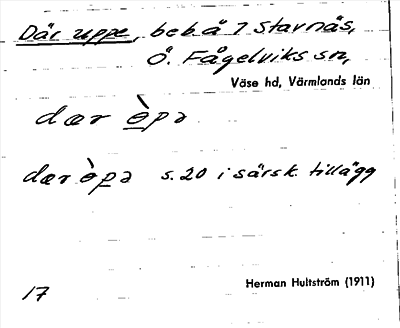 Där uppe, beb. å 7 Stavnäs,
Ö. Fågelviks sn,
Väse hd, Värmlands län
dær òpə
dær òpə s. 20 i särsk. tillägg
Herman Hultström (1911)
17